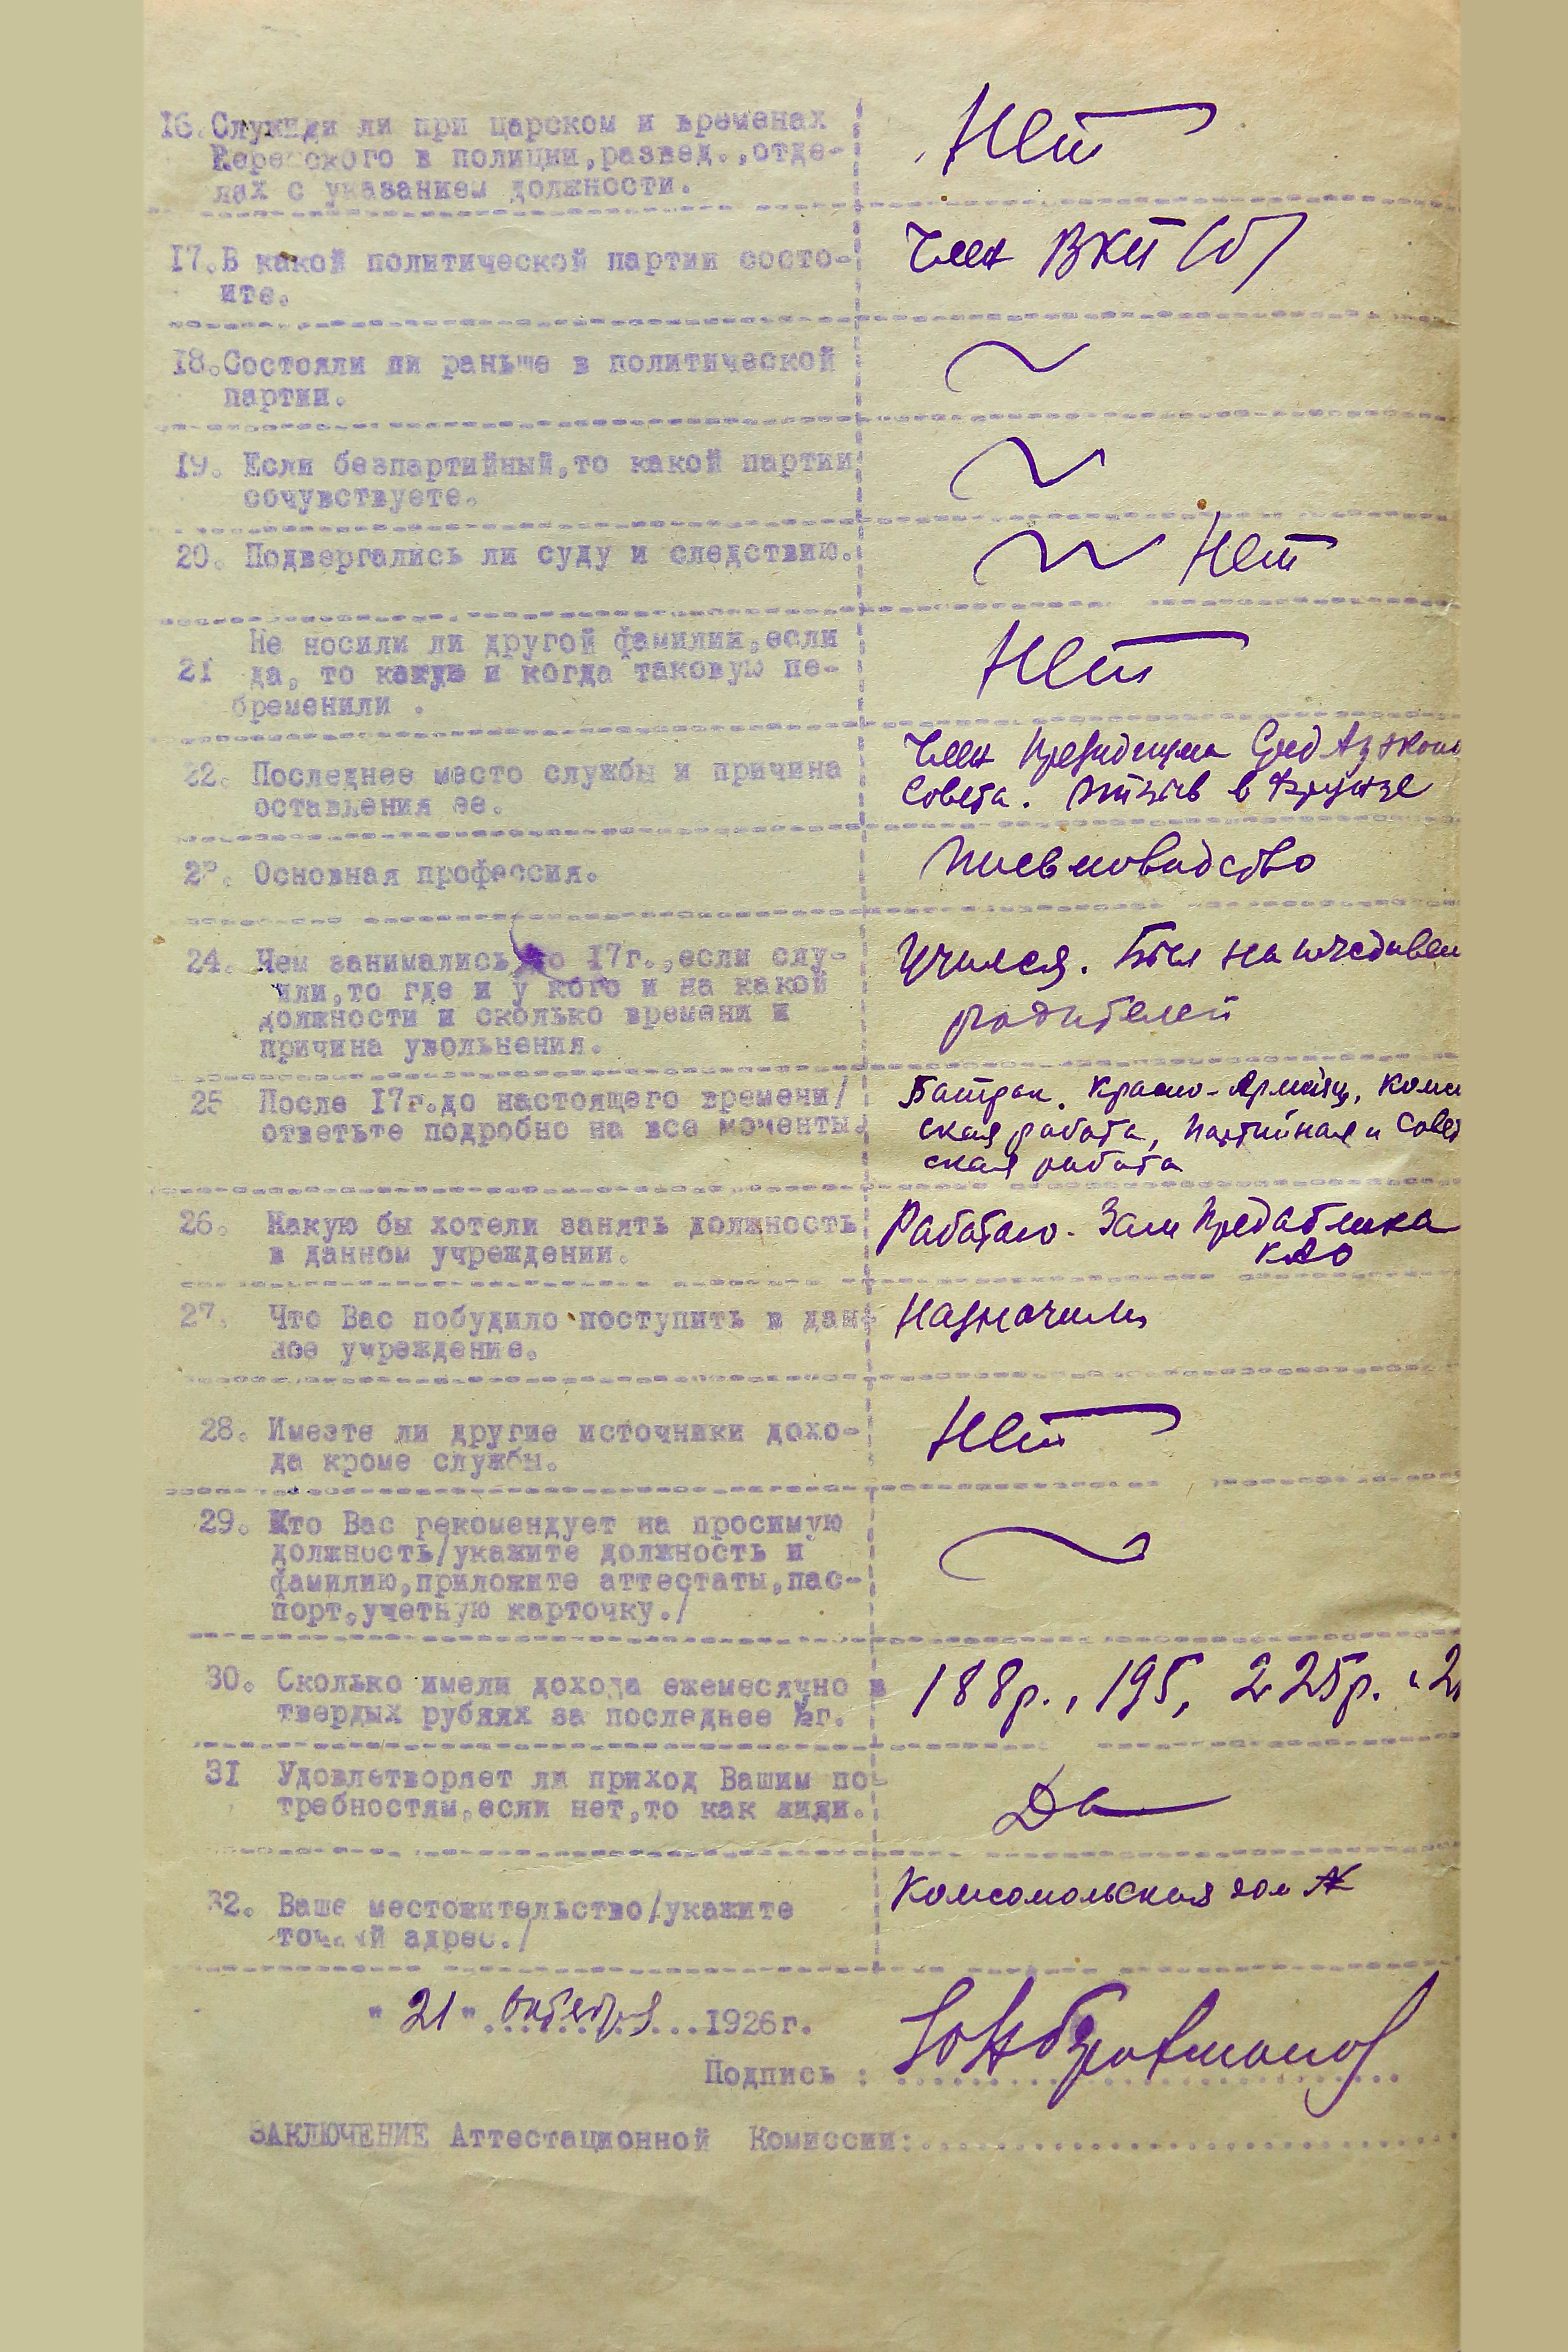 16. Служили ли при царском и временах
Керенского в полиции,развед.,отде-
лах с указанием должности.
Нет
17.В какой политической партии состо-
ите.
Член ВКП(б)
18.Состояли ли раньше в политической
партии.
19. Если безпартийный,то какой партии
сочувствуете.
20. Подвергались ли суду и следствию.
Нет
21 Не носили ли другой фамилии,если
да, то какую и когда таковую пе-
бременили .
Нет
22. Последнее место службы и причина
оставления ее.
Член Президиума СредАз эконо
Совета. Отзыв в Фрунзе
23. Основная профессия.
24. Чем занимались до 17г.,если слу-
жили,то где и у кого и на какой
должности и сколько времени и
причина увольнения.
Учился. Был на иждивен
родителей
25 После 17г.до настоящего времени/
ответьте подробно на все моменты.
Батрак. Красно-Армеец, Комс
ская работа, Партийная и Совет
ская работа
26. Какую бы хотели занять должность
в данном учреждении.
Работаю. Зам Предоблика
КАО
27. Что Вас побудило поступить в дан-
ное учреждение.
Назначили
28. Имеете ли другие источники дохо-
да кроме службы.
Нет
29. Кто Вас рекомендует на просимую
должность/укажите должность и
фамилию,приложите аттестаты,пас-
порт,учетную карточку./
30. Сколько имели дохода ежемесячно в
твердых рублях за последнее ½г.
188р., 195, 225р.
31 Удовлетворяет ли приход Вашим по-
требностям,если нет,то как жиди.
Да
32. Ваше местожительство/укажите
точный адрес./
Комсомольская дом №
"21" октября 1926г.
Подпись :
ЗАКЛЮЧЕНИЕ Аттестационной Комиссии: